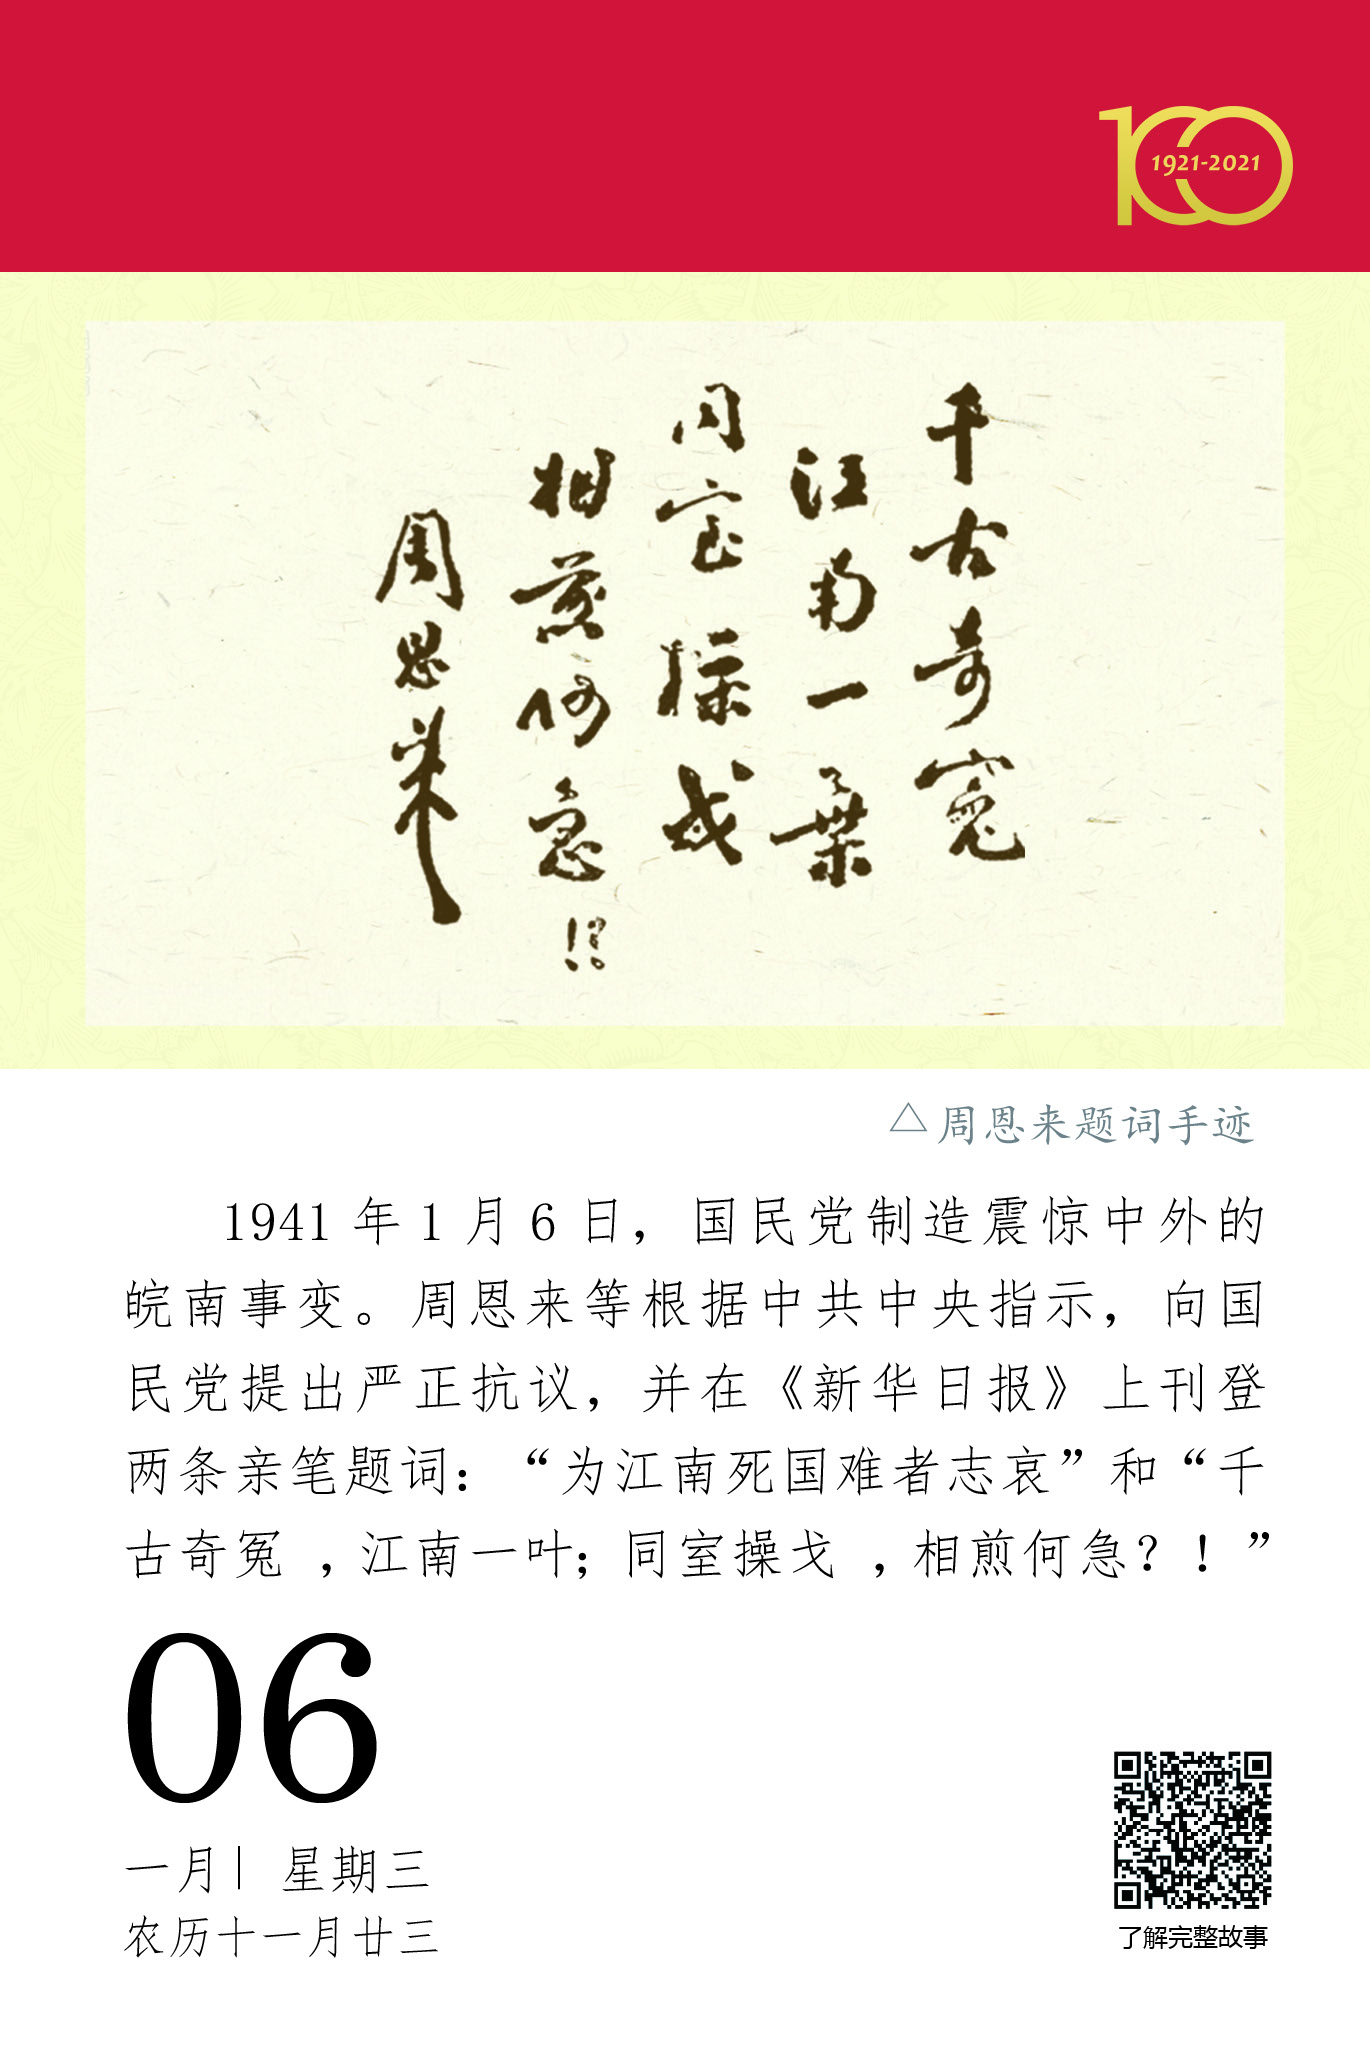 100
1921-2021
千古奇冤
江南一葉
同室操戈
相煎何急
?!
周恩来
△周恩来题词手迹
1941年1月6日，国民党制造震惊中外的
皖南事变。周恩来等根据中共中央指示，向国
民党提出严正抗议，并在《新华日报》上刊登
两条亲笔题词：“为江南死国难者志哀”和“千
古奇冤，江南一叶；同室操戈，相煎何急？！”
06
一月| 星期三
农历十一月廿三
了解完整故事